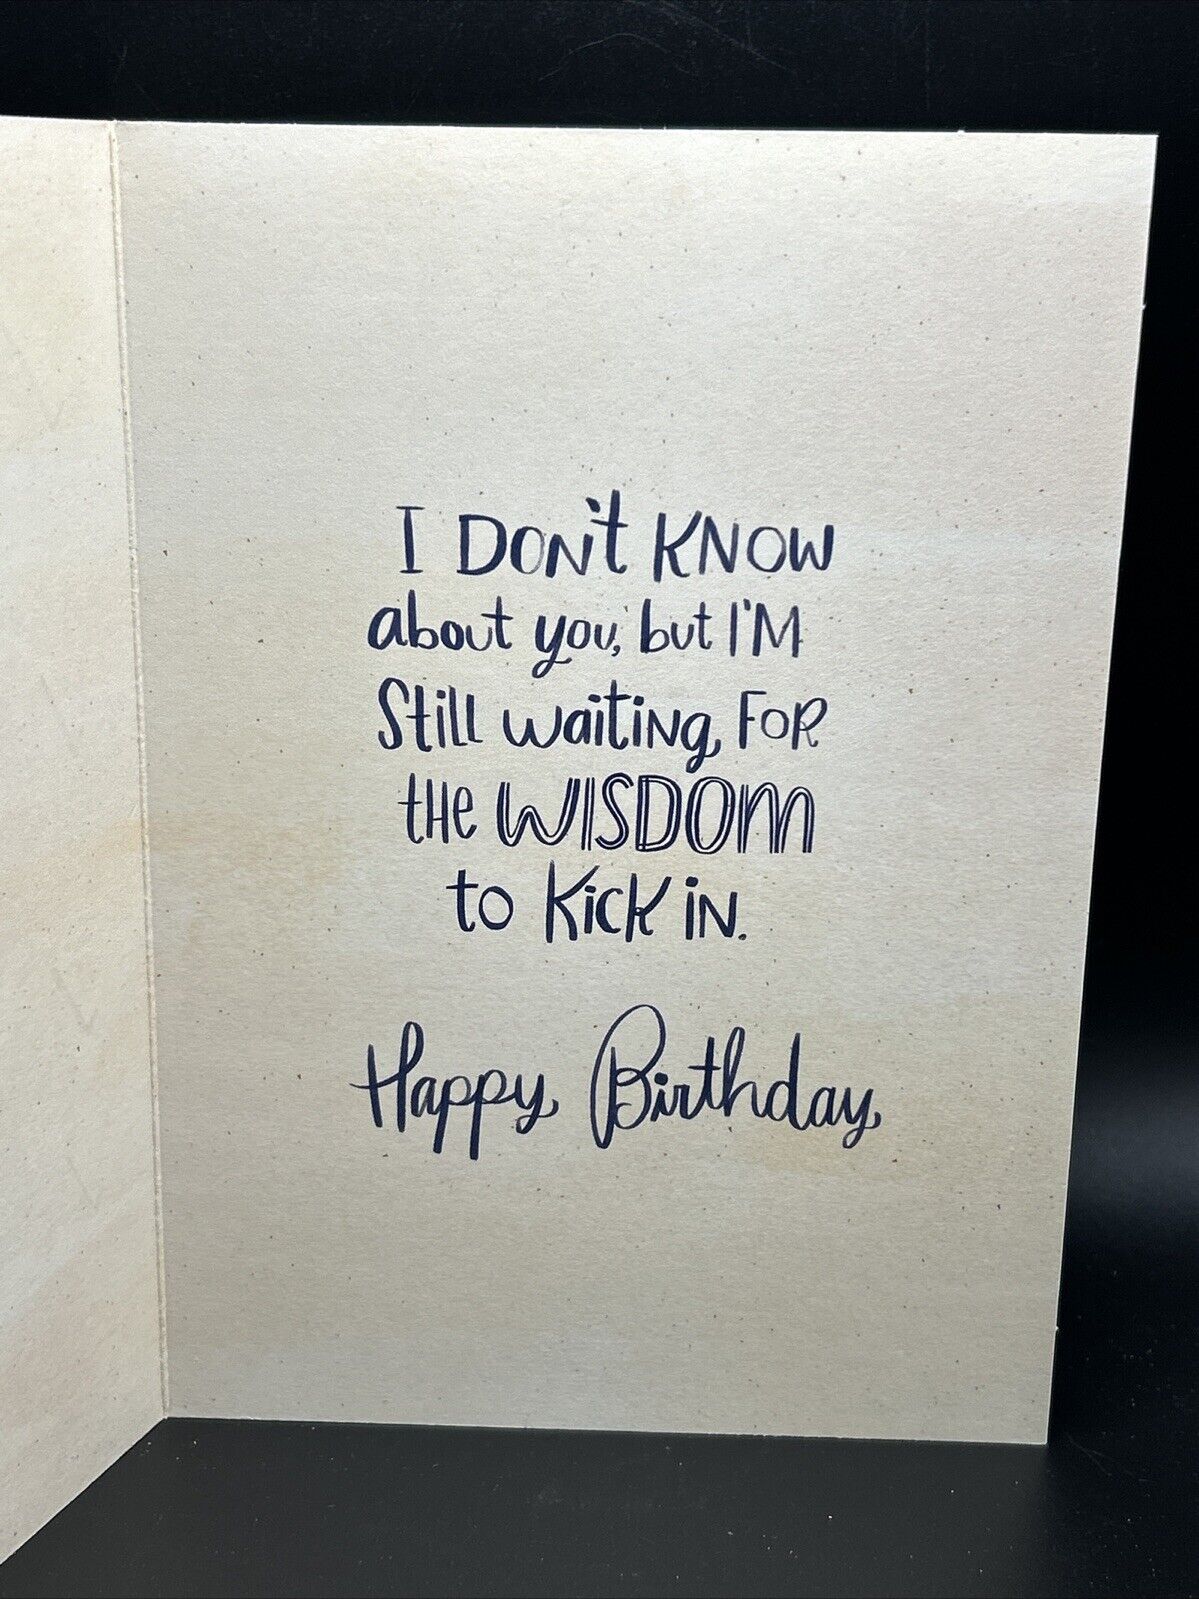 I DON't KNOW
about you, but I'M
Still waitiNg FOR
the WISDOM
to KicK iN.
Happy Birthday